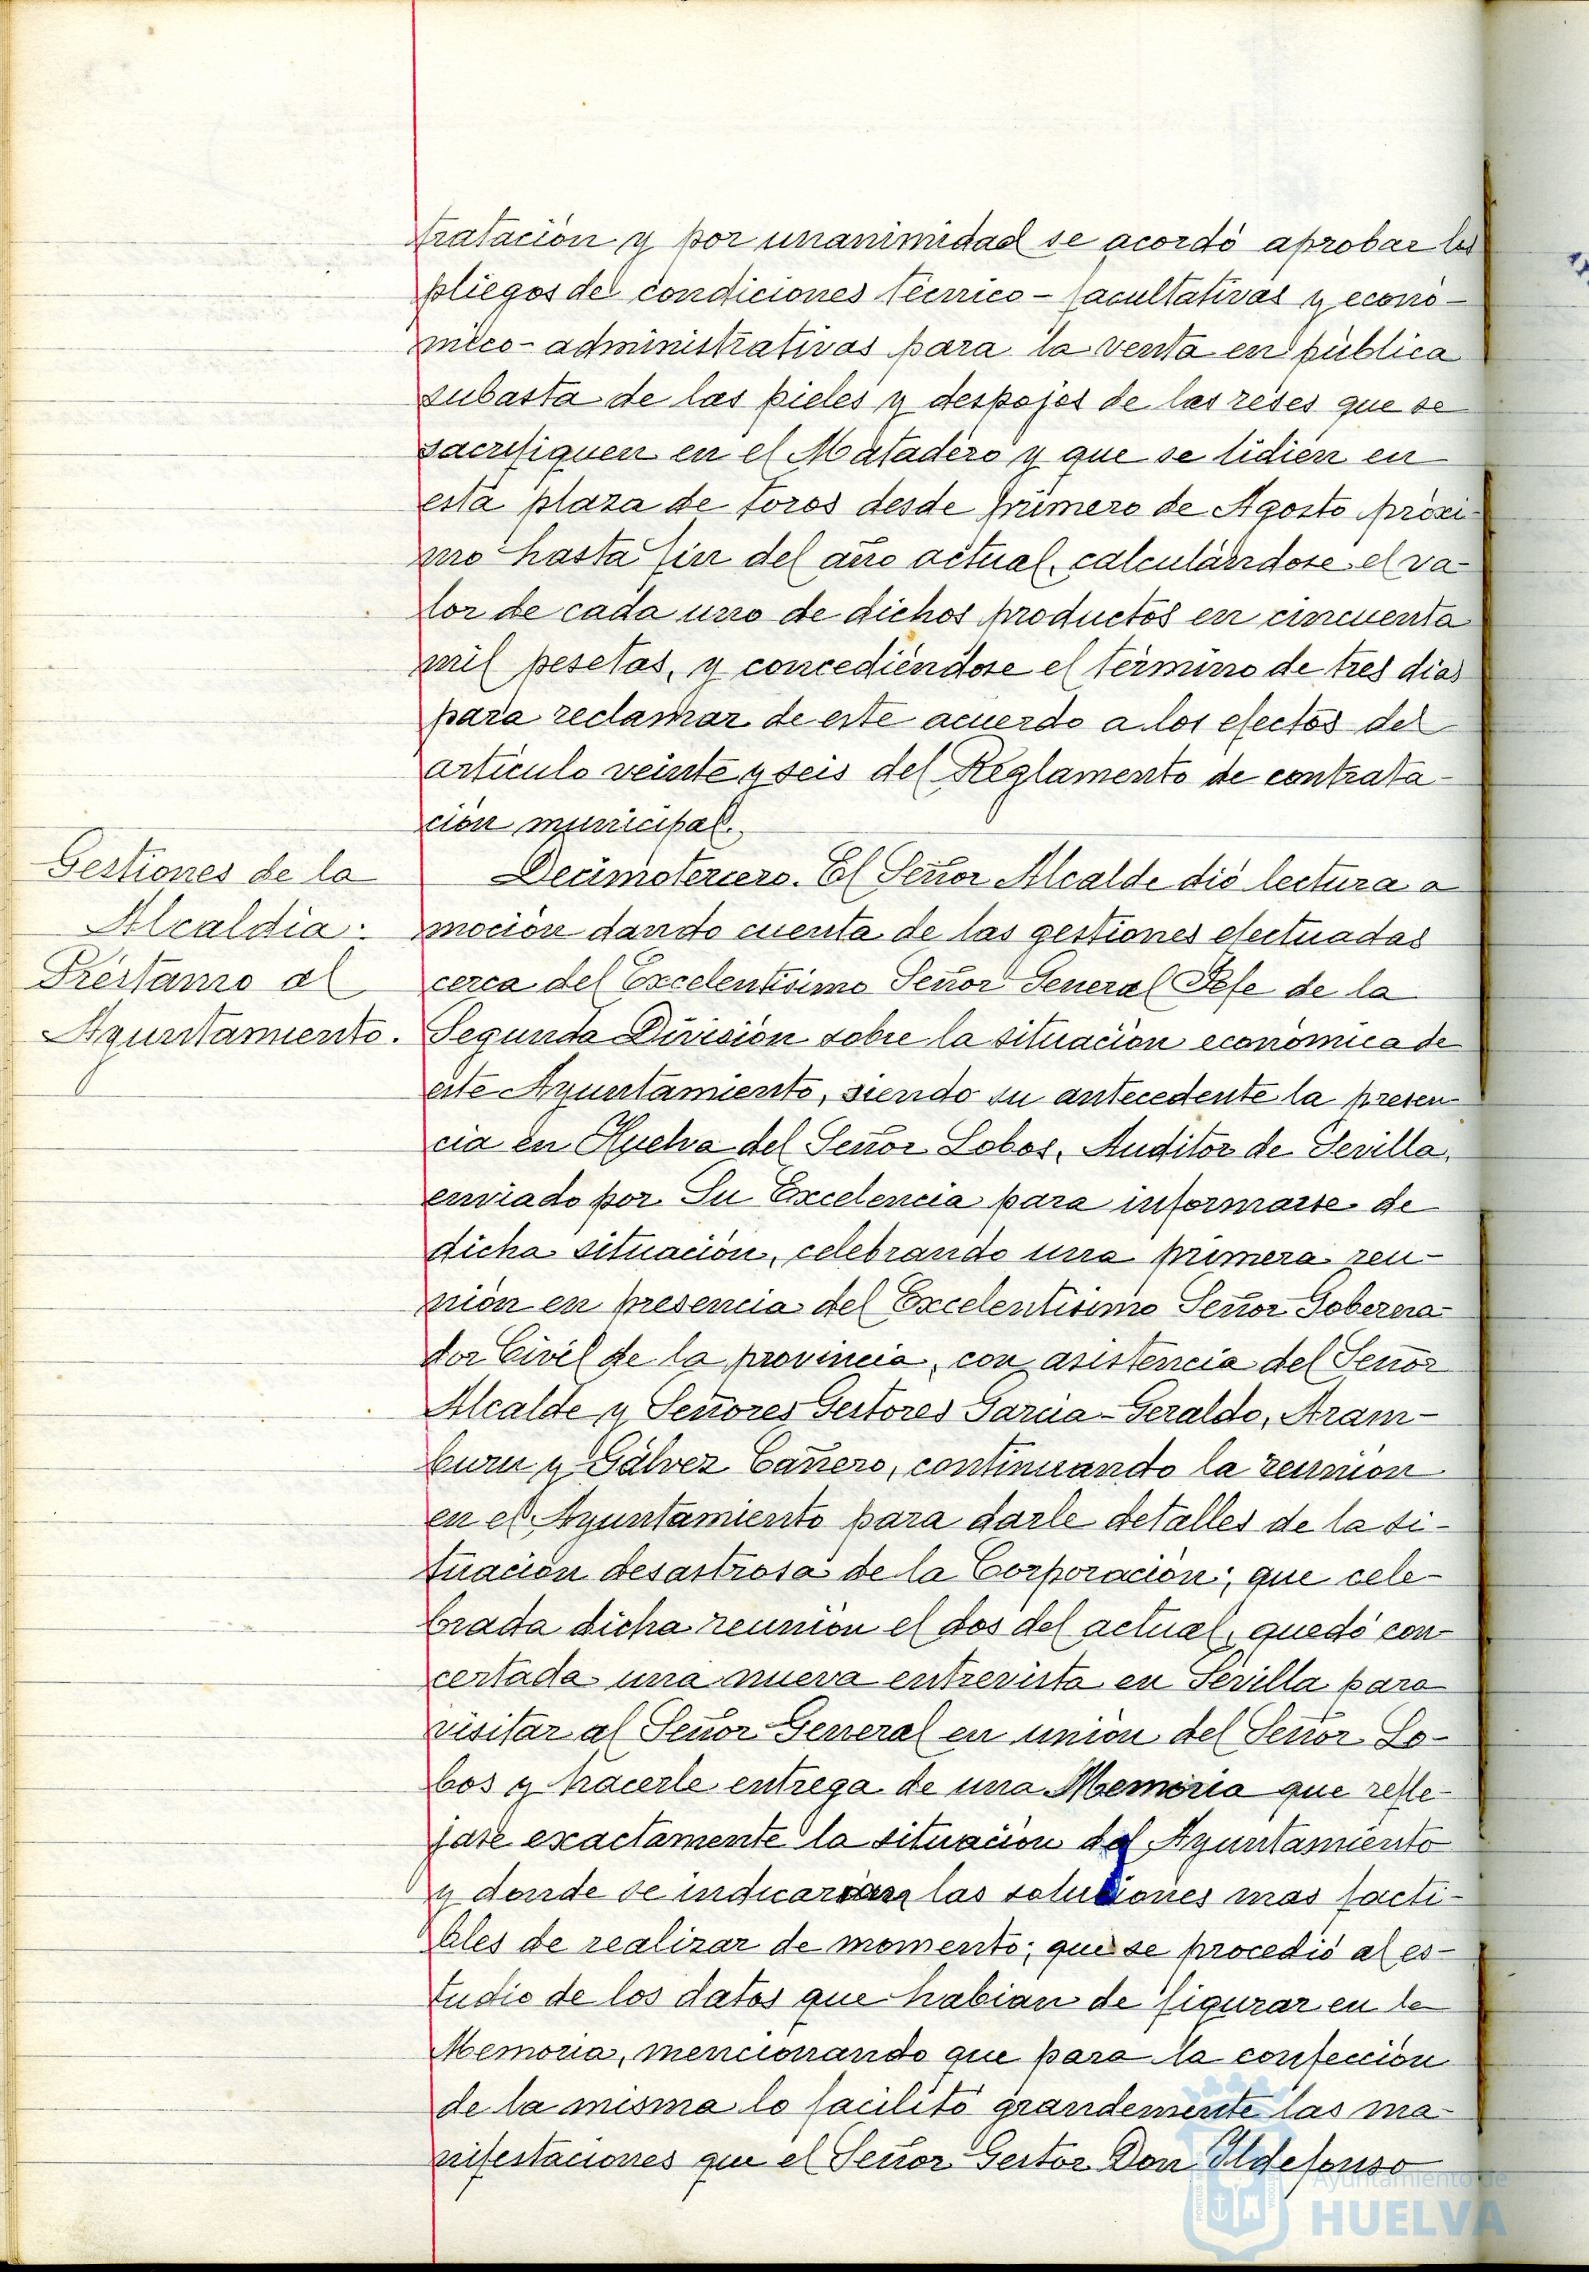 tratación y por unanimidad se acordó aprobar los
pliegos de condiciones técnico-facultativas y econó-
mico-administrativas para la venta en pública
subasta de las pieles y despojos de las reses que se
sacrifiquen en el Matadero y que se lidien en
esta plaza de toros desde primero de Agosto próxi-
mo hasta fin del año actual, calculándose el va-
lor de cada uno de dichos productos en cincuenta
mil pesetas, y concediéndose el término de tres dias
para reclamar de este acuerdo a los efectos del
artículo veinte y seis del Reglamento de contrata-
ción municipal.
Gestiones de la
Alcaldía:
Préstamo al
Ayuntamiento.
Decimotercero. El Señor Alcalde dió lectura a
moción dando cuenta de las gestiones efectuadas
cerca del Excelentísimo Señor General Jefe de la
Segunda División sobre la situación económica de
este Ayuntamiento, siendo su antecedente la presen-
cia en Huelva del Señor Lobos, Auditor de Sevilla,
enviado por Su Excelencia para informarse de
dicha situación, celebrando una primera reu-
nión en presencia del Excelentísimo Señor Goberna-
dor Civil de la provincia, con asistencia del Señor
Alcalde y Señores Gestores Garcia-Geraldo, Aram-
buru y Gálvez Cañero, continuando la reunión
en el Ayuntamiento para darle detalles de la si-
tuación desastrosa de la Corporación; que cele-
brada dicha reunión el dos del actual, quedó con-
certada una nueva entrevista en Sevilla para
visitar al Señor General en unión del Señor Lo-
bos y hacerle entrega de una Memoria que refle-
jase exactamente la situación del Ayuntamiento
y donde se indicaran las soluciones mas facti-
bles de realizar de momento; que se procedió al es-
tudio de los datos que habian de figurar en la
Memoria, mencionando que para la confección
de la misma lo facilitó grandemente las ma-
nifestaciones que el Señor Gestor Don Ildefonso
Ayuntamiento de
HUELVA